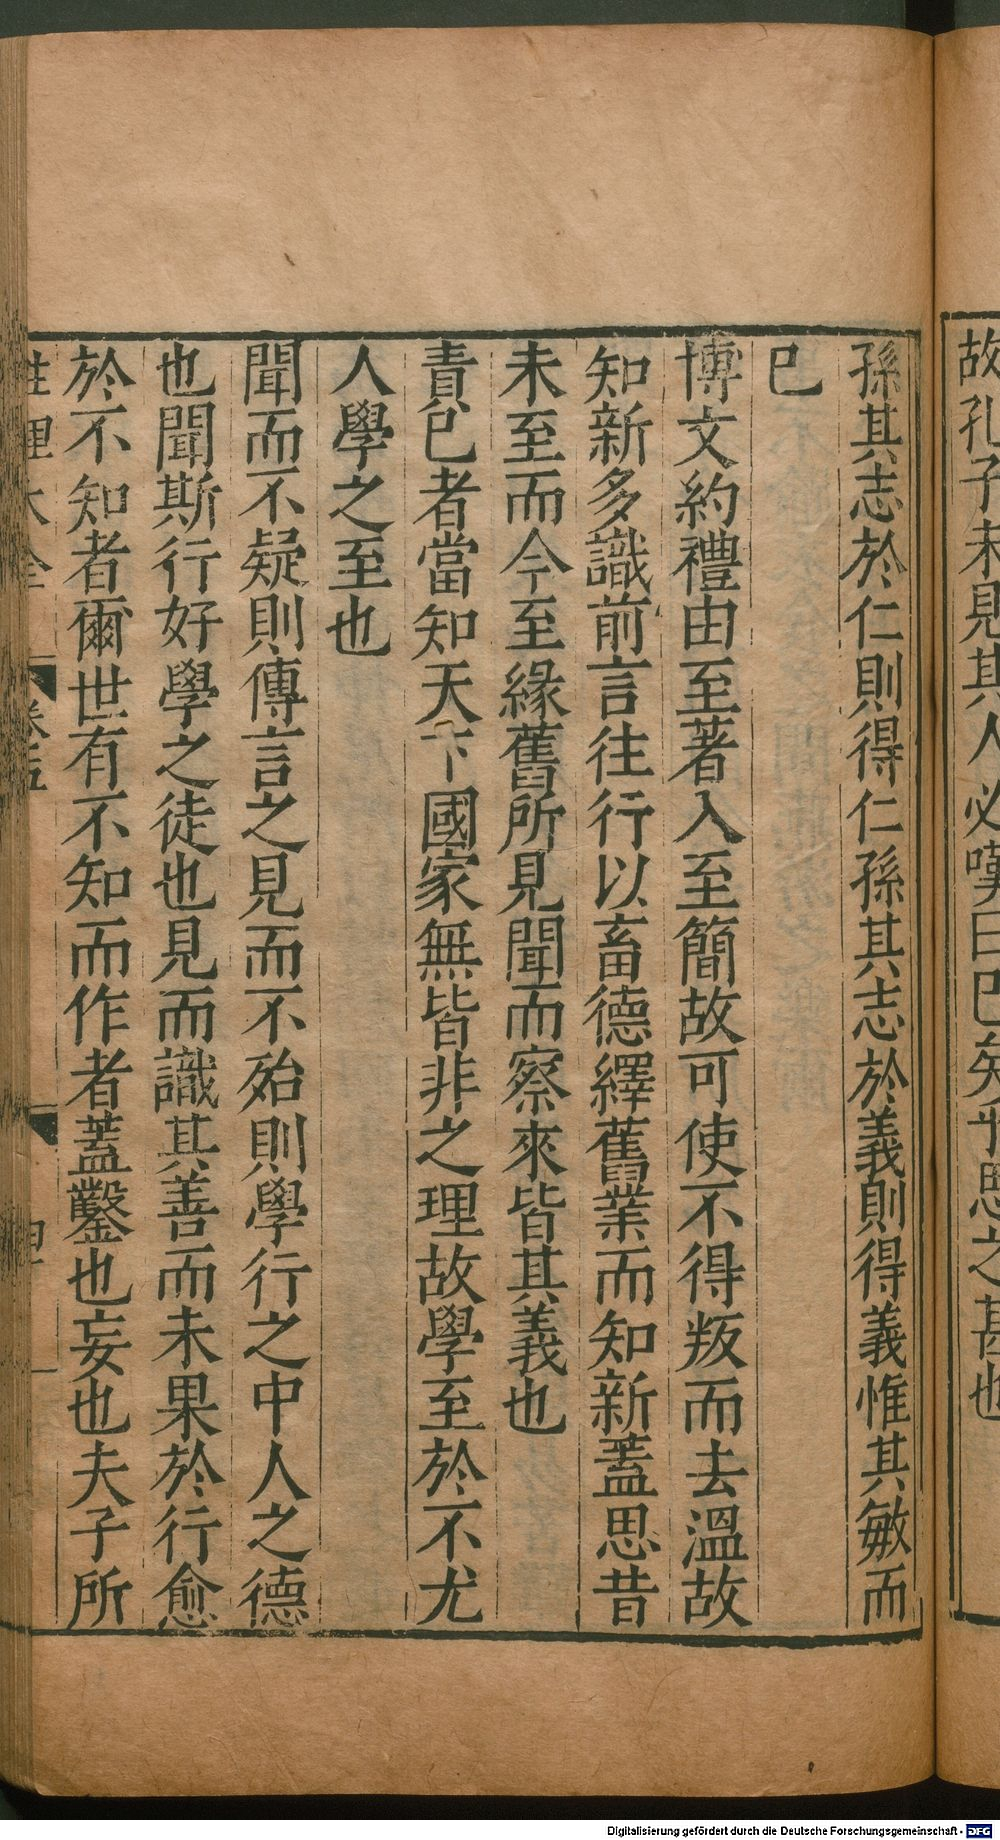 故孔子未見其人必嘆曰已矣乎思之甚也
孫其志於仁則得仁孫其志於義則得義惟其敏而
已
博文約禮由至著入至簡故可使不得叛而去溫故
知新多識前言往行以畜德繹舊業而知新蓋思昔
未至而今至緣舊所見聞而察來皆其義也
責已者當知天下國家無皆非之理故學至於不尤
人學之至也
聞而不疑則傳言之見而不殆則學行之中人之德
也聞斯行好學之徒也見而識其善而未果於行愈
於不知者爾世有不知而作者蓋鑿也妄也夫子所
性理大全 卷五
Digitalisierung gefördert durch die Deutsche Forschungsgemeinschaft - DFG